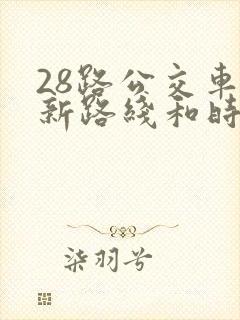 28路公交車
新路綫和時
柒羽兮